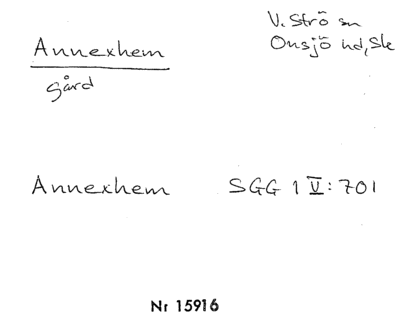 Annexhem
gård
V. Strö sn
Onsjö hd, Sk
Annexhem SGG 1 V: 701
Nr 15916